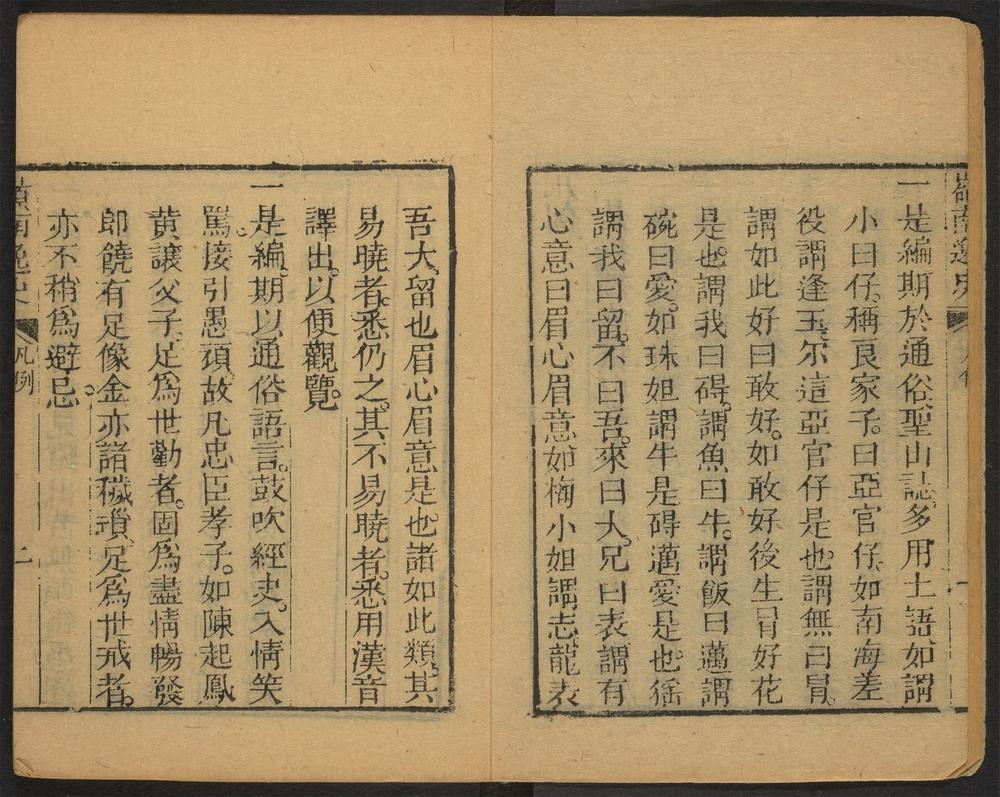 嶺南逸史
一是編期於通俗。聖山誌。多用土語。如謂
小曰仔。稱良家子。曰亞官仔。如南海差
役謂逢玉。尔這亞官仔是也。謂無曰冐。
謂如此好曰敢好。如敢好後生冐好花
是也。謂我曰碍。謂魚曰牛。謂飯曰邁。謂
碗曰愛。如珠姐謂牛是碍邁愛是也。徭
謂我曰留。不曰吾。來曰大。兄曰表。謂有
心意曰眉心眉意。如梅小姐謂志龍表
吾大。留也眉心眉意是也。諸如此類。其
易曉者。悉仍之。其不易曉者。悉用漢音
譯出。以便觀覽。
一是編。期以通俗語言。鼓吹經史。入情笑
罵。接引愚頑。故凡忠臣孝子。如陳起鳳
黄讓父子。足爲世勸者。固爲盡情暢發
即饒有足像金。亦諸穢𤨏。足爲世戒者。
亦不稍爲避忌。
嶺南逸史
凡例
二